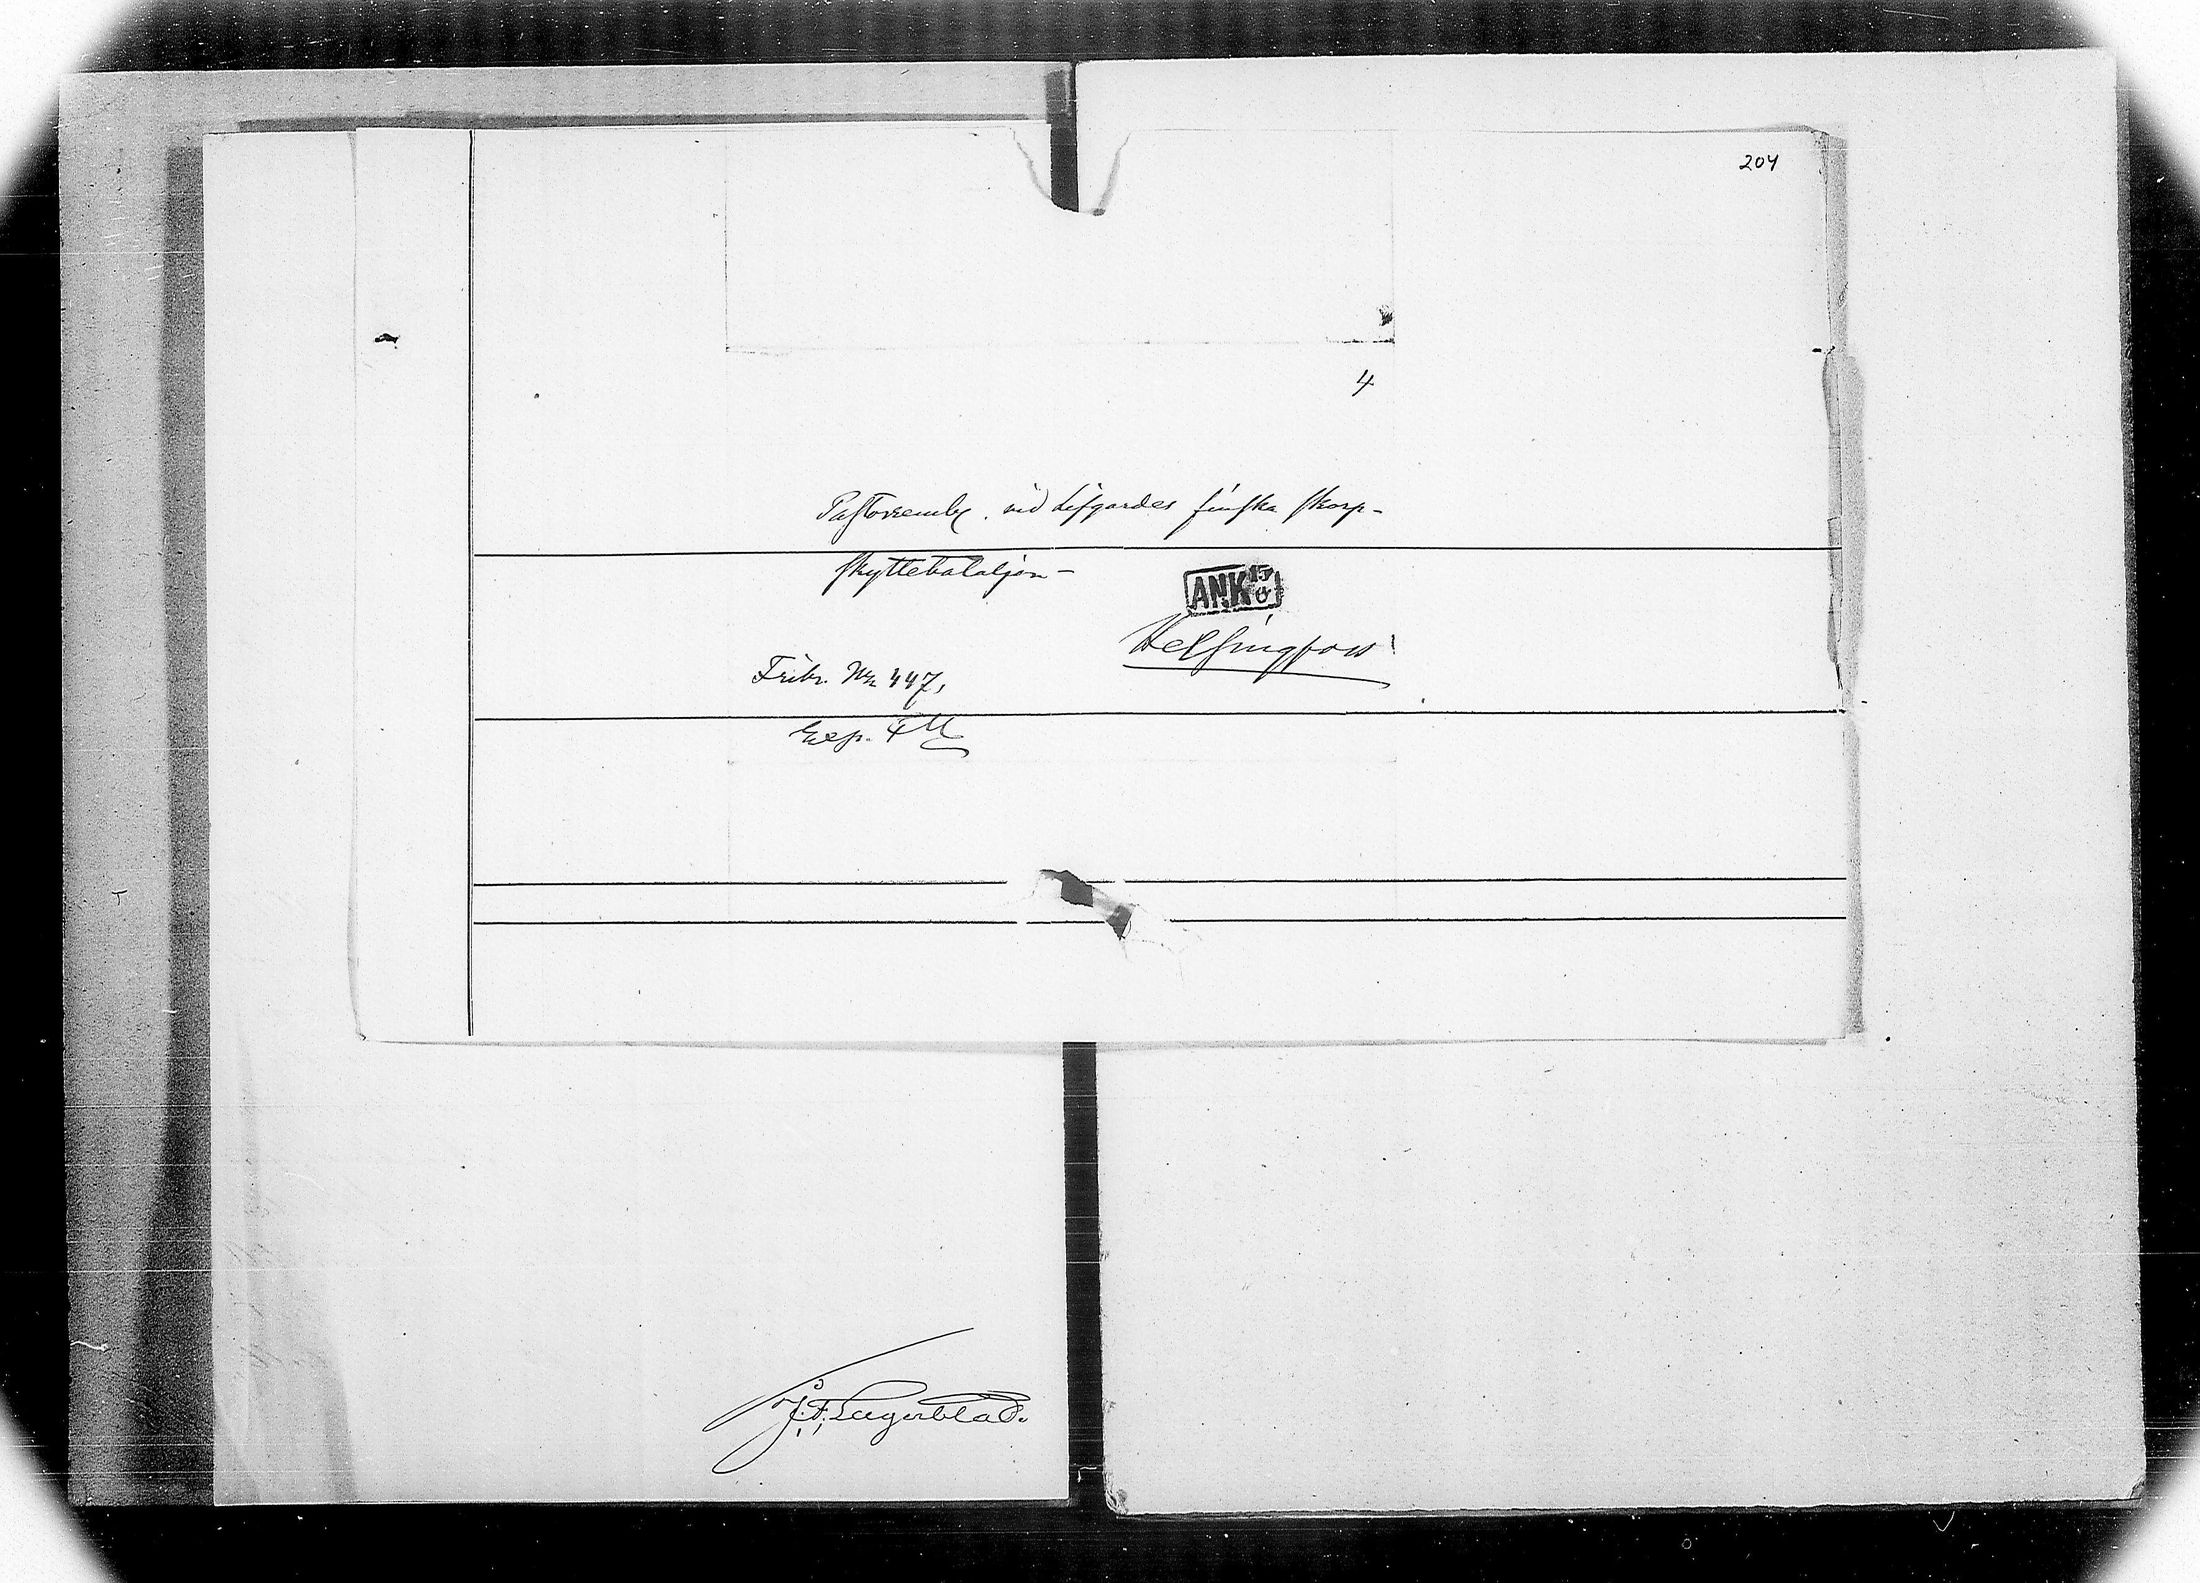 204
4
Pastorsemb. vid Lifgardes finska skarp-
skyttebataljon -
ANK 15 8
Helsingfors
Fribr. No 447,
Exp. FM
J. F. Lagerblad.